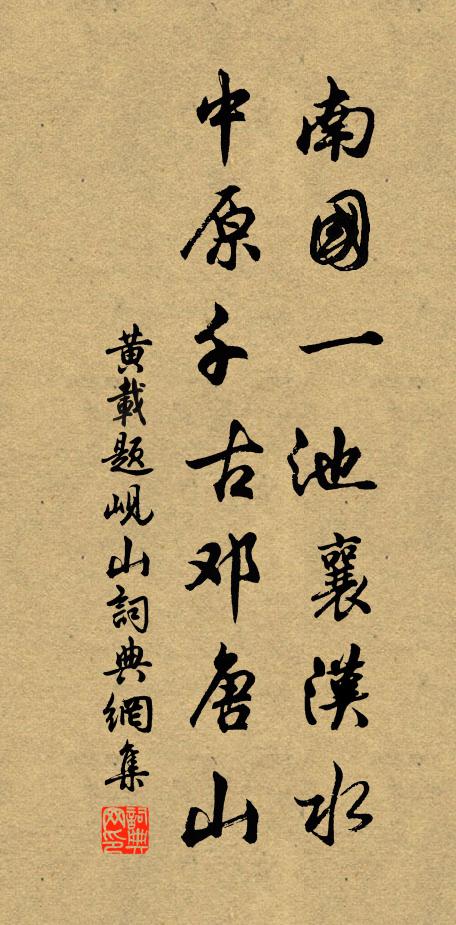 南國一池襄漢水
中原千古邓唐山
黄載题岘山詞典網集
詞典网印